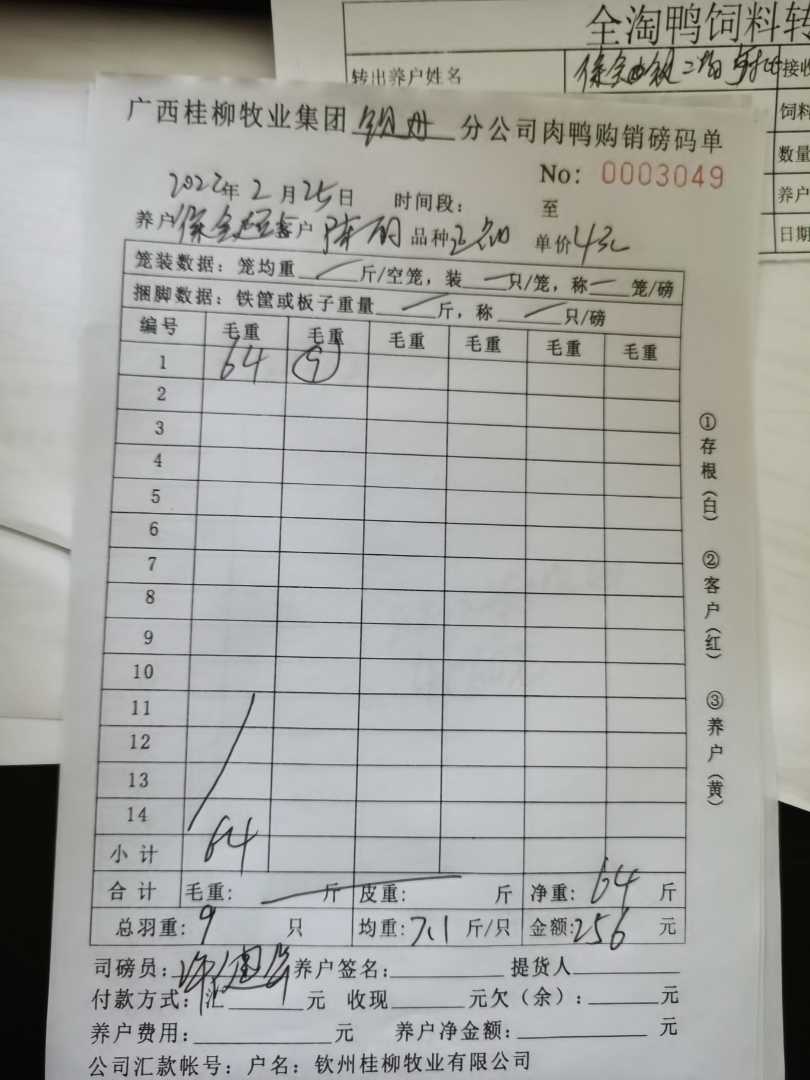 全淘鸭饲料转
转出养户姓名 接收
饲料
数量
养户
日期
广西桂柳牧业集团 钦州 分公司肉鸭购销磅码单
No: 0003049
2022年2月25日 时间段: 至
养户 客户 陈 品种 单价4元
笼装数据: 笼均重 斤/空笼, 装 只/笼, 称 笼/磅
捆脚数据: 铁筐或板子重量 斤, 称 只/磅
编号 毛重 毛重 毛重 毛重 毛重 毛重
1 64 9
2
3
4
5
6
7
8
9
10
11
12
13
14
小计 64
合计 毛重: 斤 皮重: 斤 净重: 64 斤
总羽重: 9 只 均重: 7.1 斤/只 金额: 256 元
①存根(白) ②客户(红) ③养户(黄)
司磅员: 养户签名: 提货人
付款方式: 汇 元 收现 元欠(余): 元
养户费用: 元 养户净金额: 元
公司汇款帐号: 户名: 钦州桂柳牧业有限公司